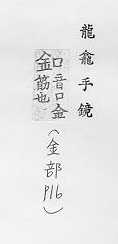 龍龕手鏡
口音口金
金筋也
(金部P16)